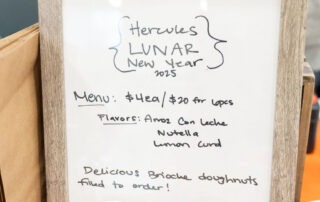 Hercules
LUNAR
New Year
2025
Menu: $4ea/$20 for 6pcs
Flavors: Arroz Con Leche
Nutella
Lemon Curd
Delicious Brioche doughnuts
filled to order!